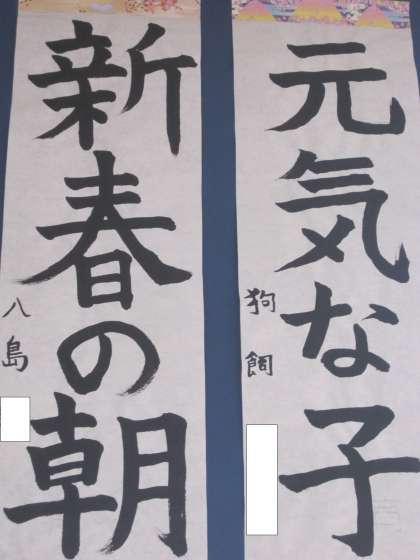 元気な子
狗飼
新春の朝
八島